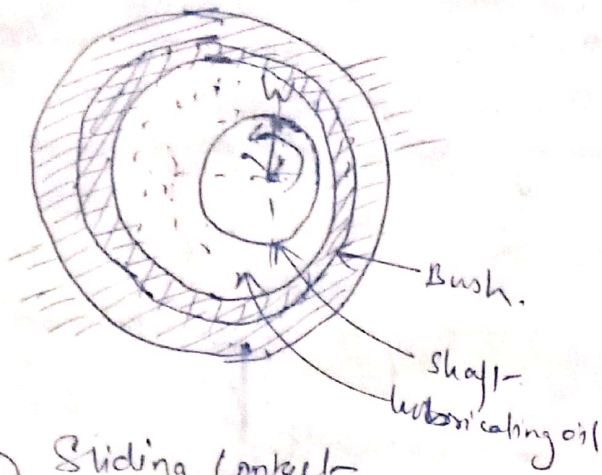 W
Bush.
Shaft
Lubricating oil
Sliding Contact